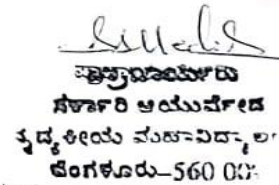 ಪ್ರಾಚಾರ್ಯರು
ಸರ್ಕಾರಿ ಆಯುರ್ವೇದ
ವೈದ್ಯಕೀಯ ಮಹಾವಿದ್ಯಾಲ
ಬೆಂಗಳೂರು-560 00